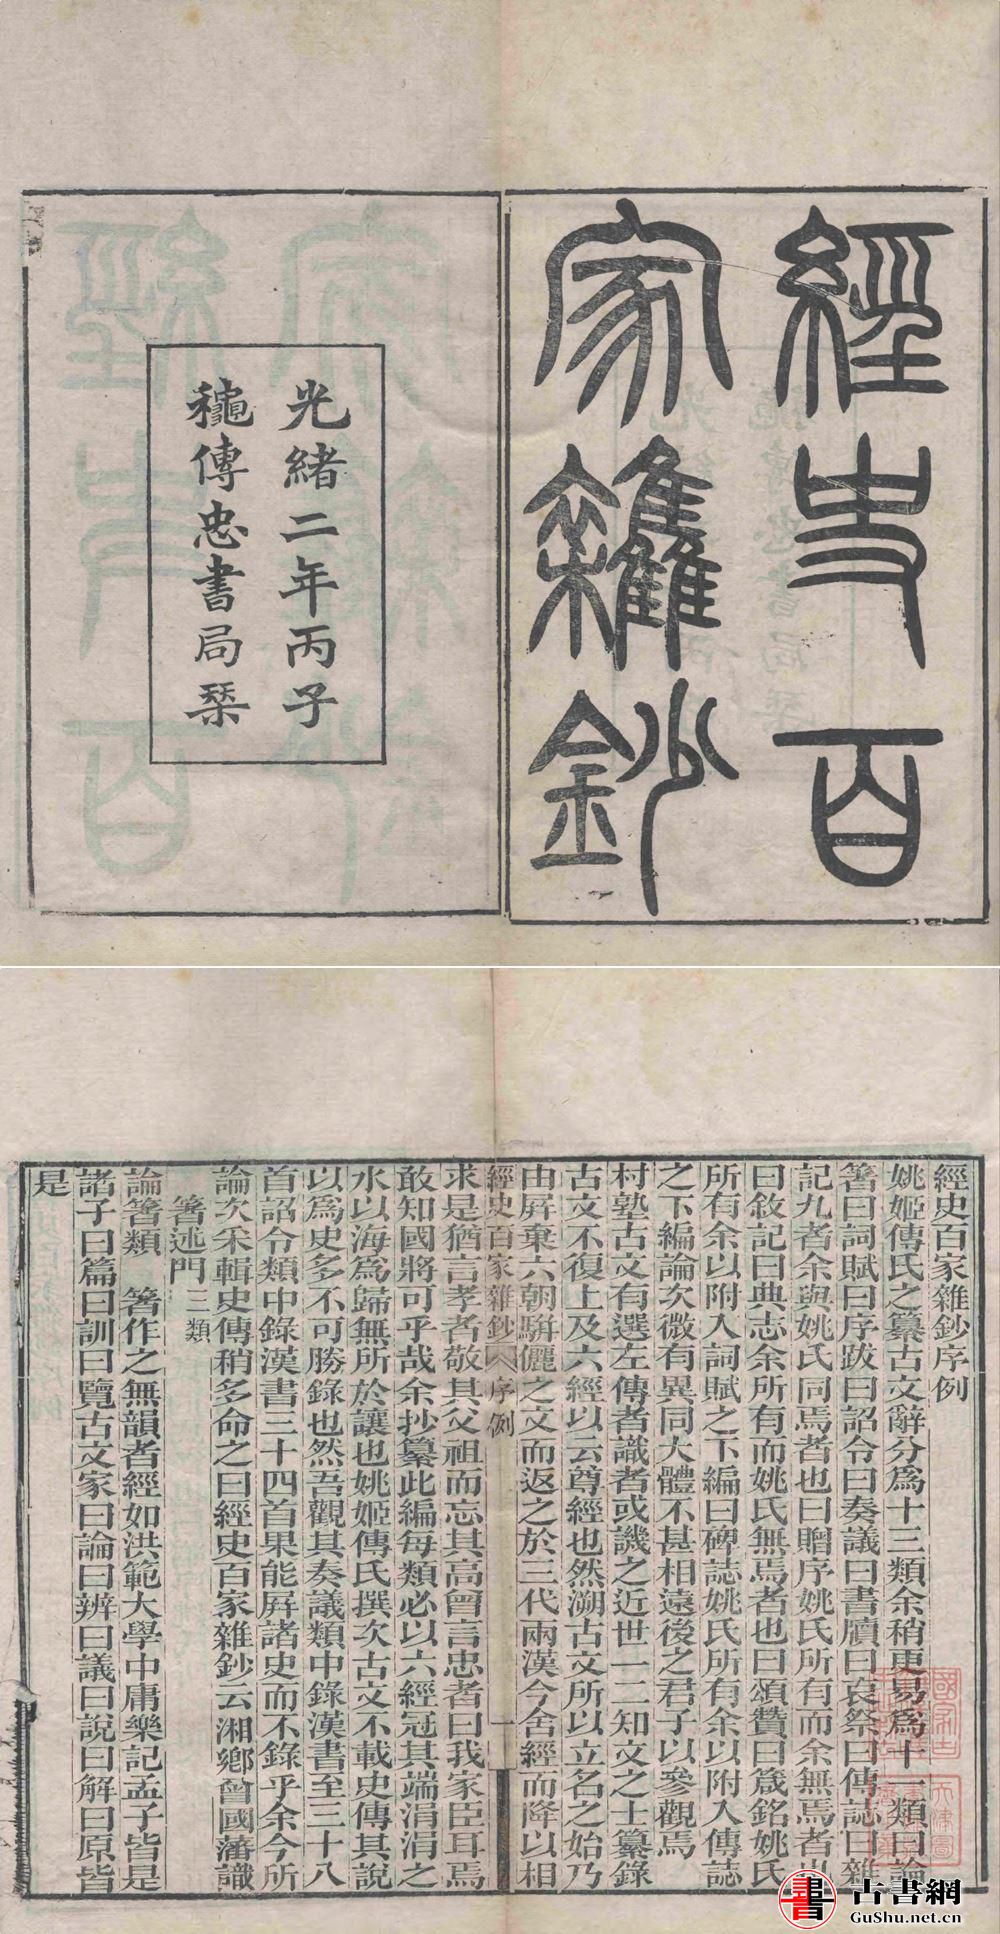 經史百
家雜鈔
光緒二年丙子
龝傳忠書局栞
經史百家雜鈔序例
姚姬傳氏之纂古文辭分爲十三類余稍更易爲十一類曰論
箸曰詞賦曰序跋曰詔令曰奏議曰書牘曰哀祭曰傳誌曰雜
記九者余與姚氏同焉者也曰贈序姚氏所有而余無焉者也
曰敘記曰典志余所有而姚氏無焉者也曰頌贊曰箴銘姚氏
所有余以附入詞賦之下編曰碑誌姚氏所有余以附入傳誌
之下編論次微有異同大體不甚相遠後之君子以參觀焉
村塾古文有選左傳者識者或譏之近世一二知文之士纂錄
古文不復上及六經以云尊經也然溯古文所以立名之始乃
由屛棄六朝駢儷之文而返之於三代兩漢今舍經而降以相
經史百家雜鈔 序例 一
求是猶言孝者敬其父祖而忘其高曾言忠者曰我家臣耳焉
敢知國將可乎哉余抄纂此編每類必以六經冠其端涓涓之
水以海爲歸無所於讓也姚姬傳氏撰次古文不載史傳其說
以爲史多不可勝錄也然吾觀其奏議類中錄漢書至三十八
首詔令類中錄漢書三十四首果能屛諸史而不錄乎余今所
論次采輯史傳稍多命之曰經史百家雜鈔云湘鄉曾國藩識
箸述門 三類
論箸類 箸作之無韻者經如洪範大學中庸樂記孟子皆是
諸子曰篇曰訓曰覽古文家曰論曰辨曰議曰說曰解曰原皆
是
書
古書網
GuShu.net.cn